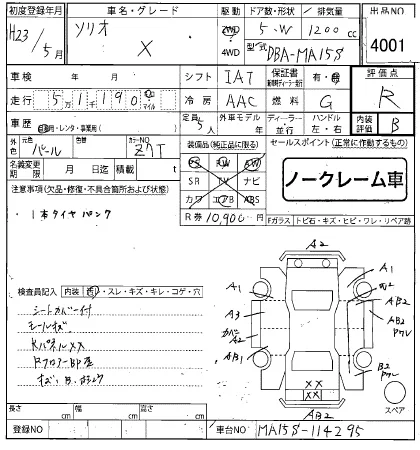 初度登録年月 車名・グレード ドア数・形状 / 排気量 出品NO
H23/5月 ソリオ X 2WD 4WD 5・W 1200cc 4001
型式 DBA-MA15S
車検 年 月 シフト IAT 保証書 有・無 評価点
走行 5 1 1 9 0 km マイル 冷房 AAC 燃料 G R
車歴 自家用・レンタ・事業用( ) 定員 5人 外車モデル 年 ディーラー・並行 ハンドル 左・右 内装評価 B
外色 元色 パール 色替 カラーNO Z7T
名義変更期限 月 日迄 積載 t
注意事項(欠品・修復・不具合箇所および状態)
・1本タイヤパンク
装備品(純正品に限る)
PS PW SW
SR TV ナビ
カワ エアB ABS
R券 10,900円
セールスポイント(正常に作動するもの)
ノークレーム車
Fガラス トビ石・キズ・ヒビ・ワレ・リペア跡
検査員記入 内装 汚れ・スレ・キズ・キレ・コゲ・穴
シートカバー付
モールキズ
RパネルXX
Rフロアー凹歪
A2
A1
A3
カバーA2
AB1
A1
AB2
AB2
ワレ
B2
XX
XX
AB2
スペア
長さ cm 幅 cm 高さ cm
登録NO 車台NO MA15S-114295